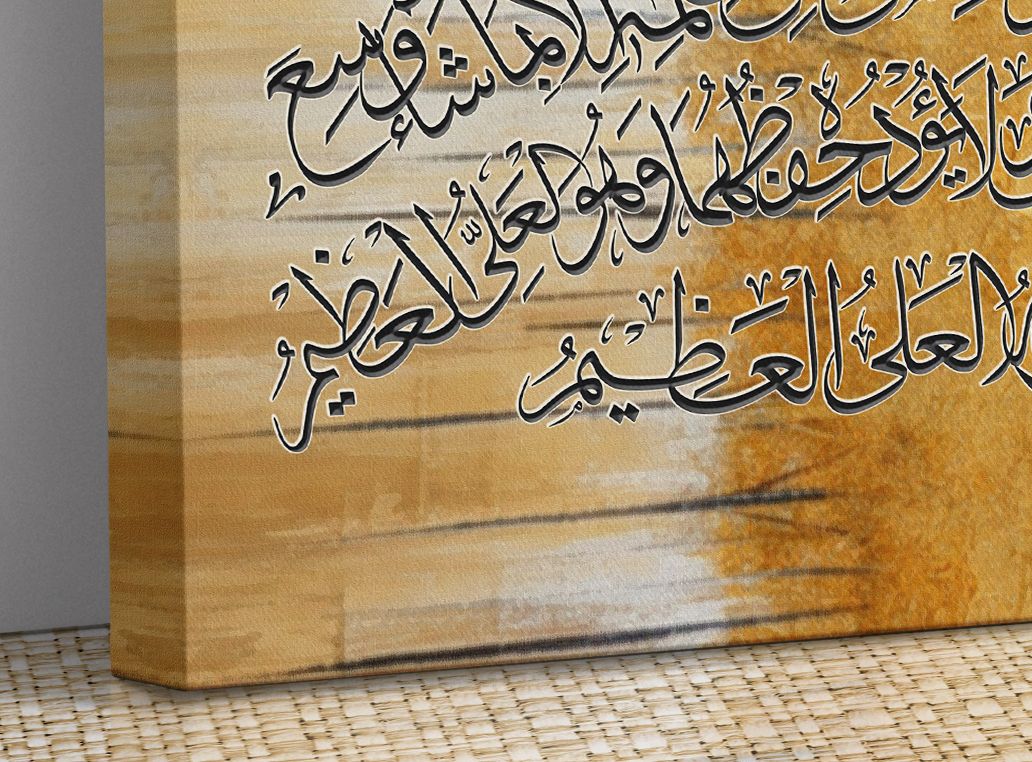 إِلَّا بِمَا شَاءَ وَسِعَ
لَا يَؤُدُهُ حِفْظُهُمَا وَهُوَ الْعَلِىُّ الْعَظِيمُ
الْعَلِىُ الْعَظِيمُ